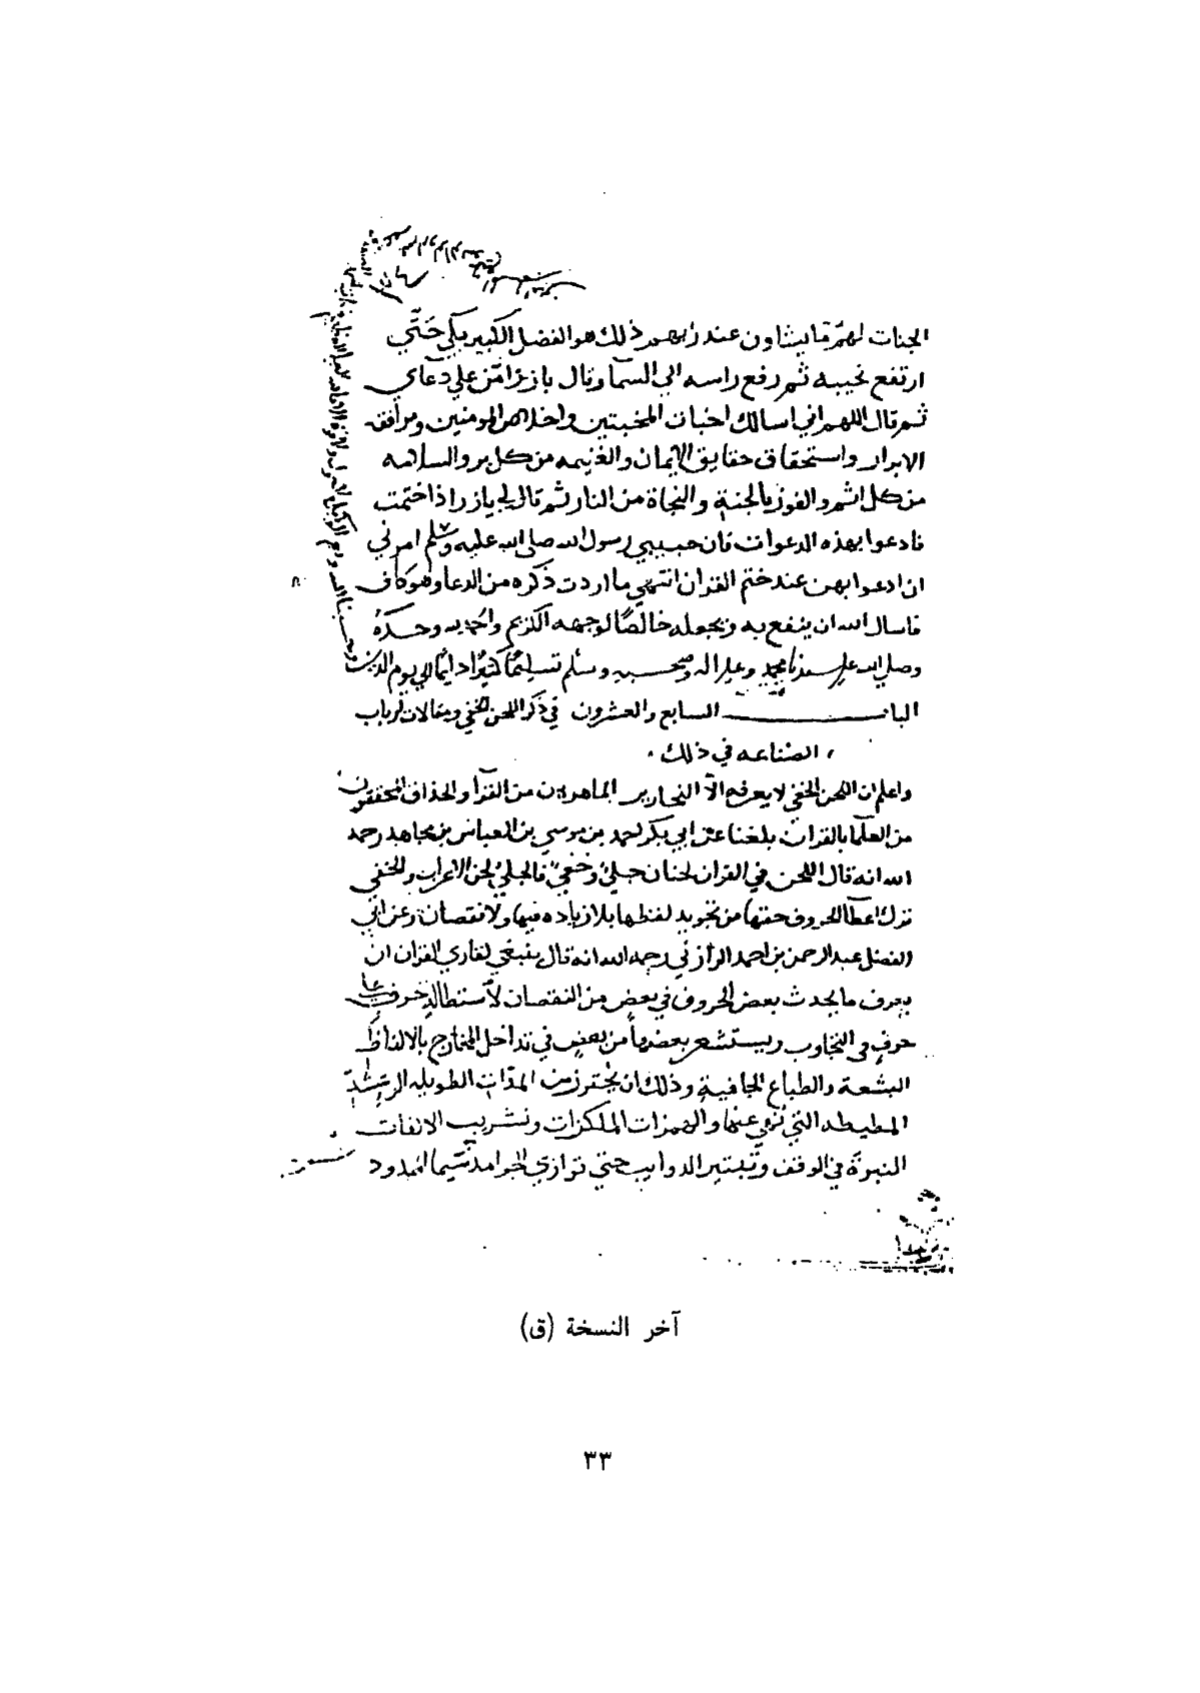 الجنات لهم ما يشاون عند ربهم ذلك هو الفضل الكبير بكي حَتَّي
ارتفع نحيبه ثم رفع راسه الي السمآ وقال يا زر امّن علي دعآي
ثم قال اللهم اني اسالك اخبات المخبتين واخلاص المومنين ومرافقه
الابرار واستحقاق حقايق الايمان والغنيمه من كل بر والسلامه
من كل اثم والفوز بالجنة والنجاة من النار ثم قال لي يازر اذا ختمت
فادعوا بهذه الدعوات فان حبيبي رسول الله صلي الله عليه وسلم امرني
ان ادعوا بهن عند ختم القران انتهي ما اردت ذكره من الدعا وهو كاف
فاسال الله ان ينفع به ويجعله خالصًا لوجهه الكريم والحمد لله وحده
وصلي الله علي سيدنا محمد وعلي اله وصحبه وسلم تسليمًا كثيرًا دايمًا الي يوم الدين
الباب السابع والعشرون في ذكر اللحن الخفي ومقالات ارباب
الصناعه في ذلك
واعلم ان اللحن الخفي لا يعرفه الا النحارير الماهرون من القرآ والحذاق المحققون
من العلما بالقران بلغنا عن ابي بكر احمد بن موسي بن العباس بن مجاهد رحمه
الله انه قال اللحن في القران لحنان جليّ وخفي فالجلي لحن الاعراب والخفي
ترك اعطآ الحروف حقها من تجويد لفظها بلا زياده فيها ولا نقصان وعن ابي
الفضل عبد الرحمن بن احمد الرازي رحمه الله انه قال ينبغي لقاري القران ان
يعرف ما يحدث بعض الحروف في بعض من النقصان لاستطالة حروف علي
حرفٍ في التجاوب ويستشعر بعضها من بعض في تداخل المخارج بالالفاظ
البشعة والطباع الجافية وذلك ان يحترز من المدّات الطويله
المطيطه التي نهي عنها والهمزات الملكزات وتشريب الانفات
النبرة في الوقف حتي توازي الجوامد سيما الممدود
آخر النسخة (ق)
٣٣